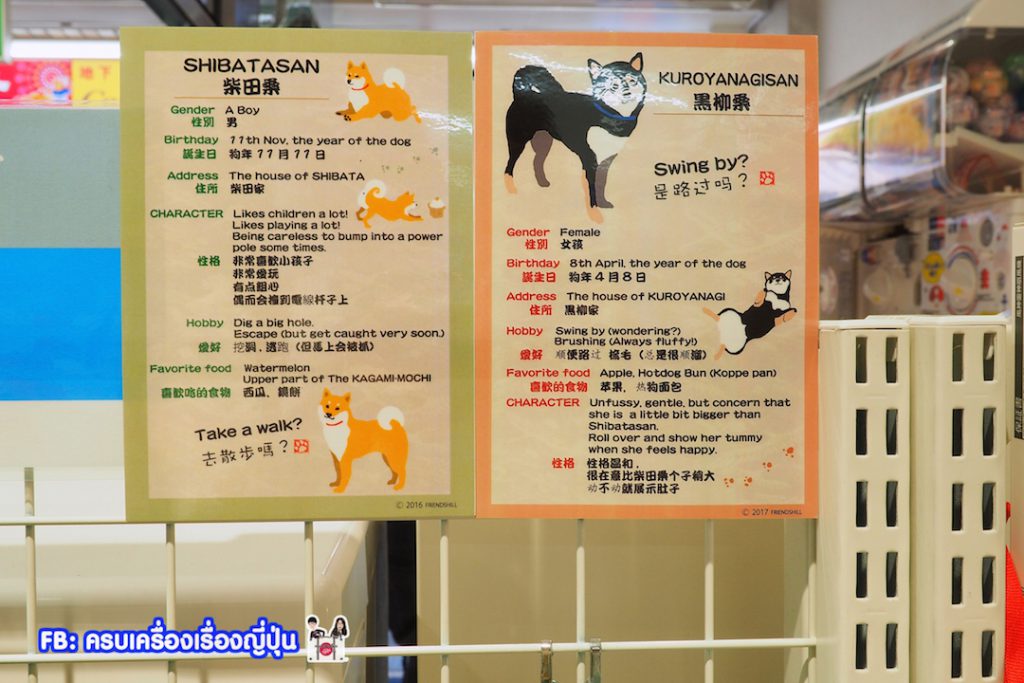 SHIBATASAN
柴田桑
Gender A Boy
性別 男
Birthday 11th Nov, the year of the dog
誕生日 狗年 11月11日
Address The house of SHIBATA
住所 柴田家
CHARACTER Likes children a lot!
Likes playing a lot!
Being careless to bump into a power
pole some times.
性格 非常喜歡小孩子
非常愛玩
有点粗心
偶而会撞到電線杆子上
Hobby Dig a big hole.
Escape (but get caught very soon.)
愛好 挖洞、逃跑（但馬上会被抓）
Favorite food Watermelon
Upper part of The KAGAMI-MOCHI
喜歡吃的食物 西瓜、鏡餅
Take a walk?
去散步嗎？
© 2016 FRIENDSHILL
KUROYANAGISAN
黒柳桑
Swing by?
是路过吗？
Gender Female
性別 女孩
Birthday 8th April, the year of the dog
誕生日 狗年4月8日
Address The house of KUROYANAGI
住所 黒柳家
Hobby Swing by (wondering?)
Brushing (Always fluffy!)
愛好 顺便路过 梳毛（总是很顺溜）
Favorite food Apple, Hotdog Bun (Koppe pan)
喜歡的食物 苹果，热狗面包
CHARACTER Unfussy, gentle, but concern that
she is a little bit bigger than
Shibatasan.
Roll over and show her tummy
when she feels happy.
性格 性格温和，
很在意比柴田桑个子稍大
动不动就展示肚子
© 2017 FRIENDSHILL
FB: ครบเครื่องเรื่องญี่ปุ่น